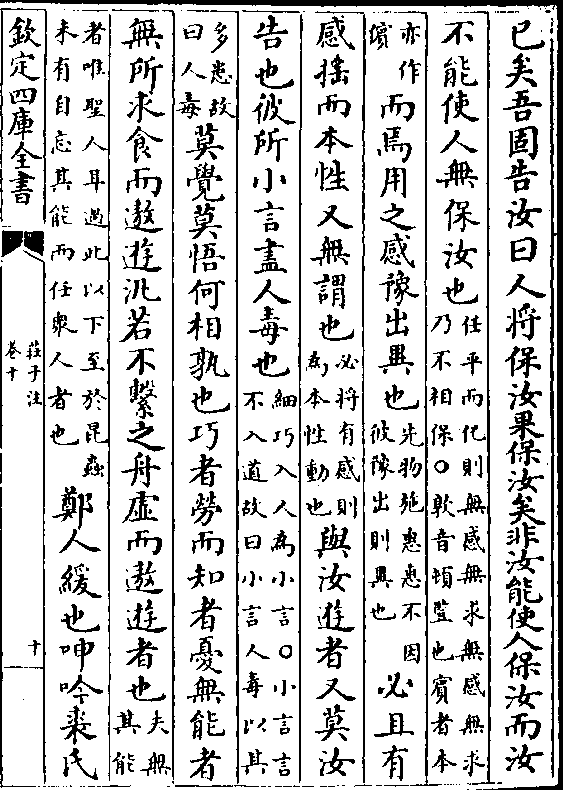 已矣吾固告汝曰人將保汝果保汝矣非汝能使人保汝而汝
不能使人無保汝也
任平而化則無感無求無感無求
乃不相保○敦音頓豎也賓者本
亦作
儐
而焉用之感豫出異也
先物施惠惠不因
彼豫出則異也
必且有
感搖而本性又無謂也
必將有感則
為本性動也
與汝遊者又莫汝
告也彼所小言盡人毒也
細巧入人為小言○小言言
不入道故曰小言人毒以其
多患故
曰人毒
莫覺莫悟何相孰也巧者勞而知者憂無能者
無所求食而遨遊汎若不繫之舟虛而遨遊者也
夫無
其能
者唯聖人耳過此以下至於昆蟲
未有自忘其能而任衆人者也
鄭人緩也呻吟裘氏
欽定四庫全書
莊子注
卷十
十